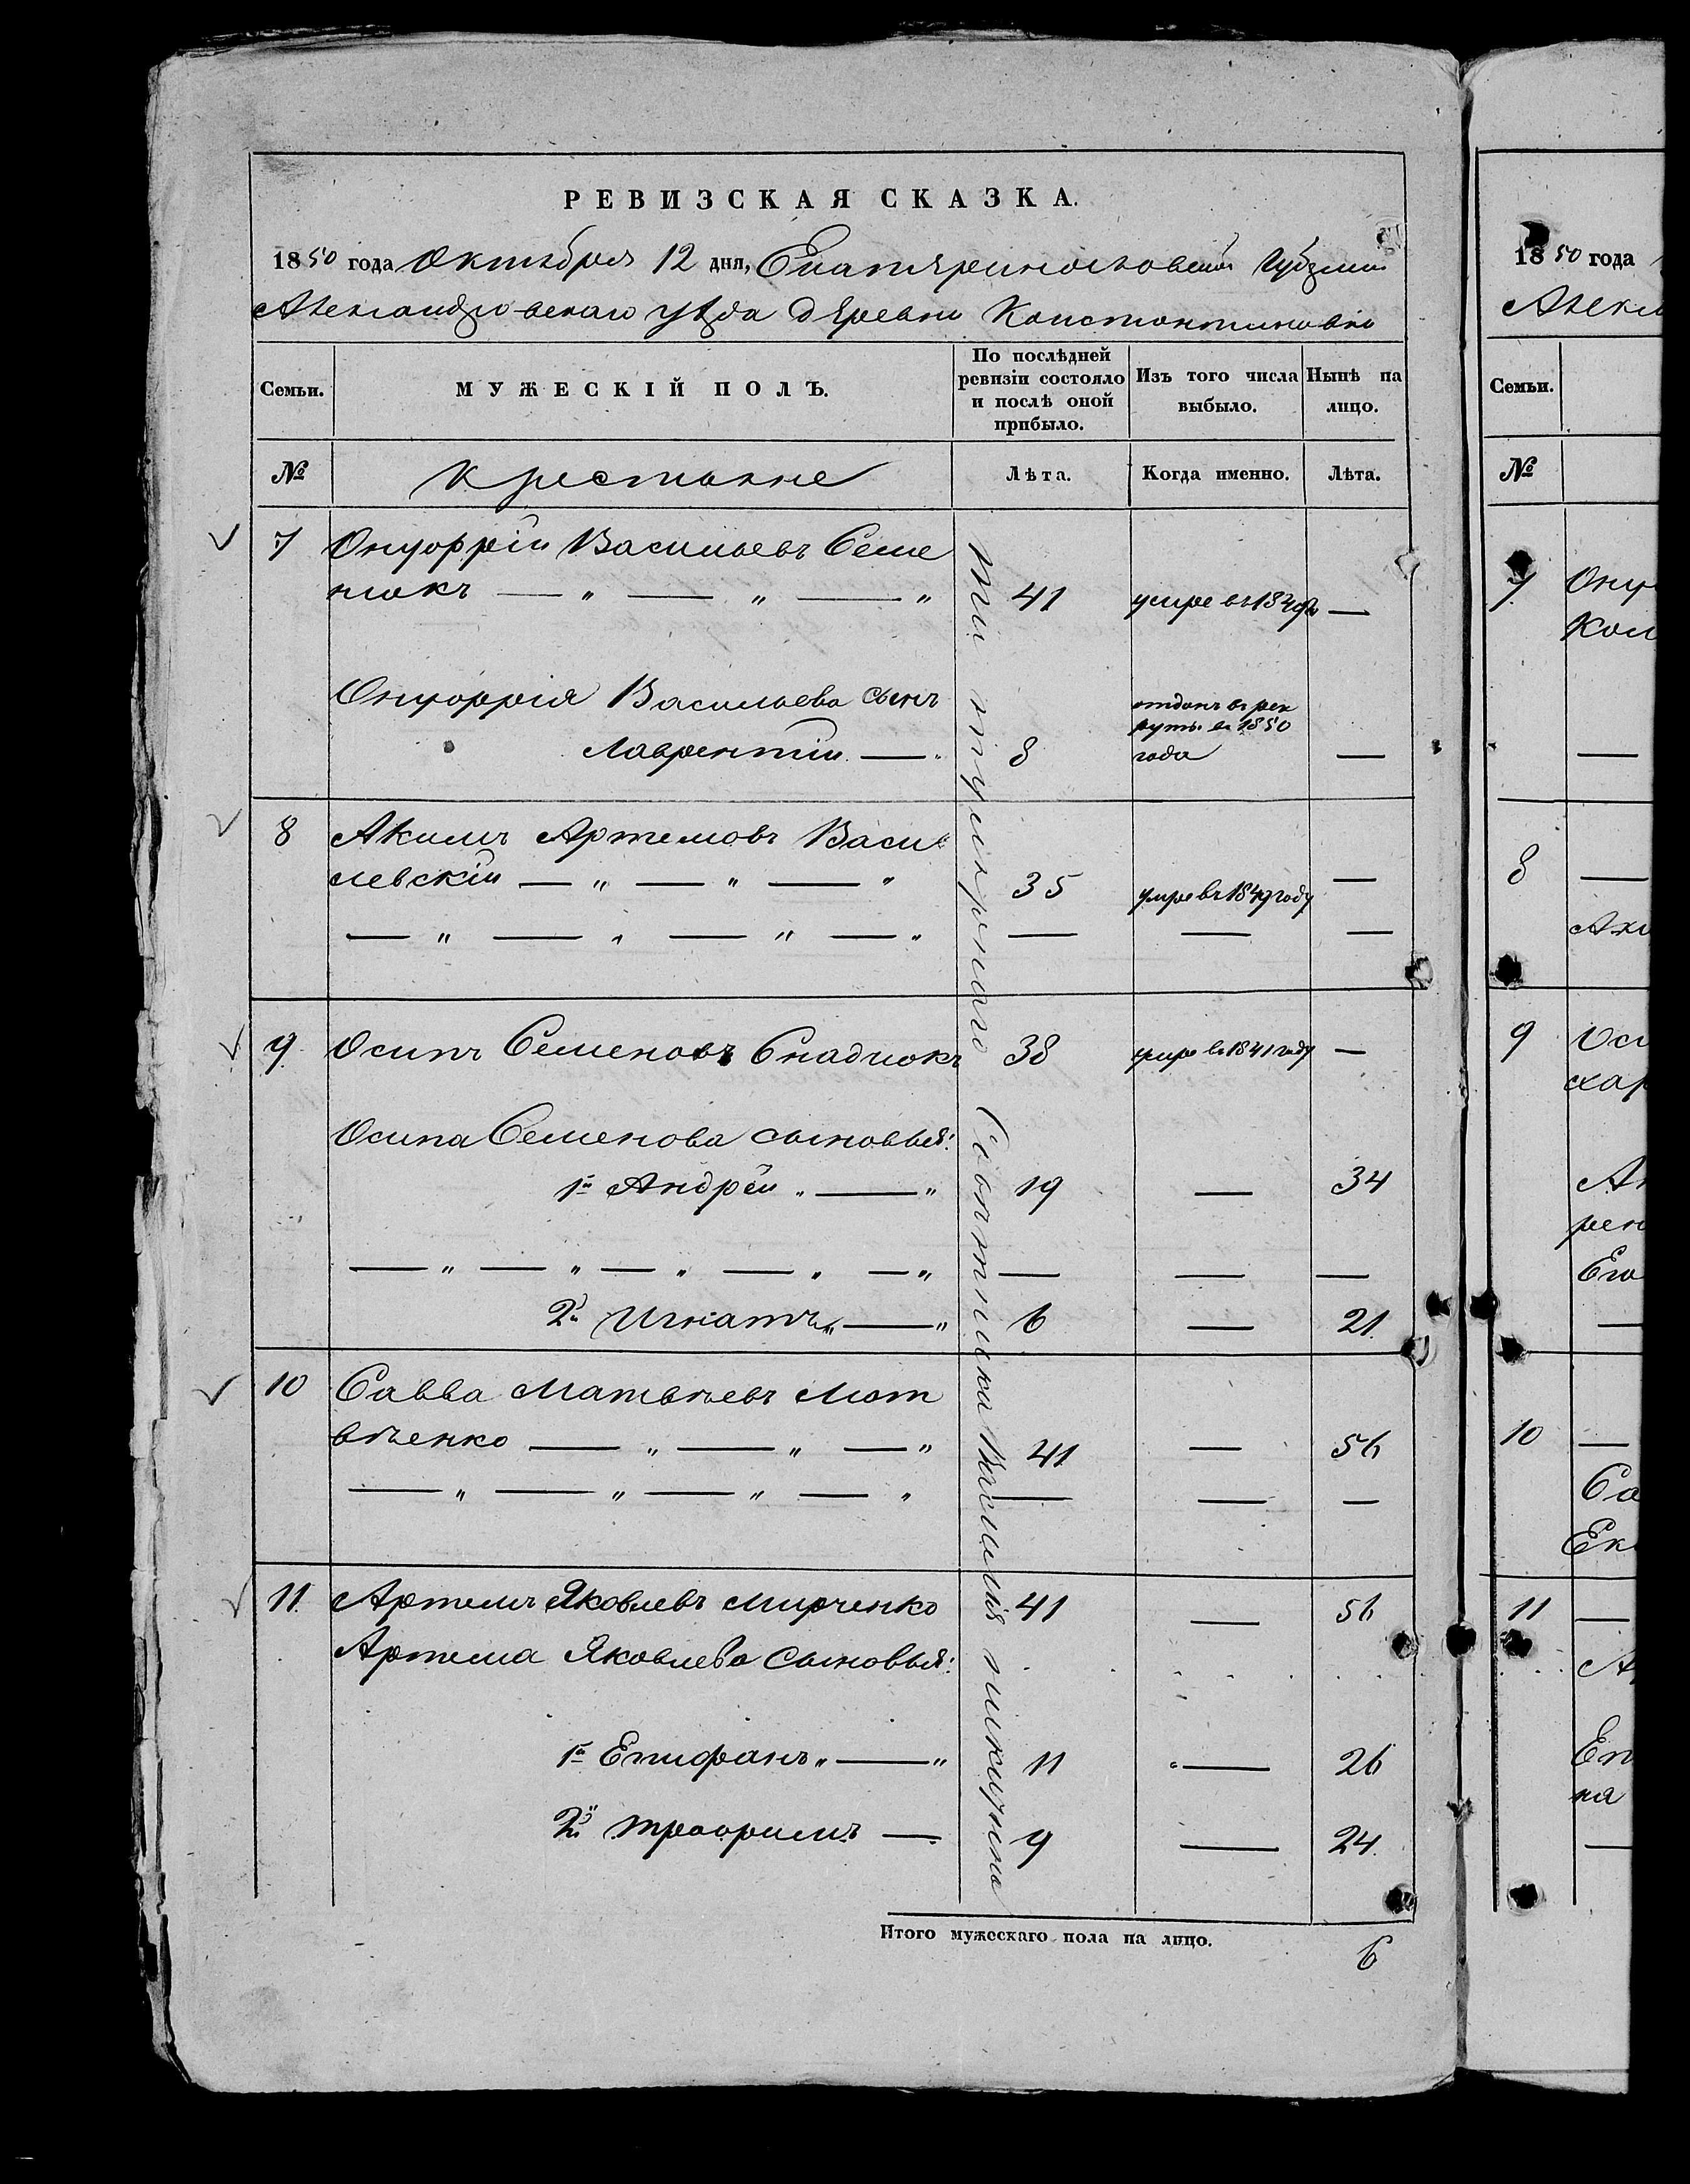 РЕВИЗСКАЯ СКАЗКА.
1850 года Октября 12 дня, Екатеринославской Губерніи
Александровскаго уѣзда деревни Константиновки
Семьи.
МУЖЕСКІЙ ПОЛЪ.
По послѣдней ревизіи состояло и послѣ оной прибыло.
Изъ того числа выбыло.
Нынѣ на лицо.
№ Крестьяне Лѣта. Когда именно. Лѣта.
7 Онуфрій Васильевъ Семе
нюкъ — „ — „ — „ 41 умре въ —
Онуфрія Васильева сынъ
отданъ въ рек
руты въ 1850
Лаврентій — „ 8 года —
8 Акимъ Артемовъ Васи
левскій — „ — „ — „ 35 умре въ 1849 году —
— „ — „ — „ — „ — — —
9 Осипъ Семеновъ Снадюкъ 38 умре въ 1841 году —
Осипа Семенова сыновья:
1й Андрей „ — „ 19 — 34
— „ — „ — „ — „ — „ — — —
2й Игнатъ „ — „ 6 — 21
10 Савва Матвѣевъ Мат
вѣенко — „ — „ — „ 41 — 56
— „ — „ — „ — „ — — —
11 Артемъ Яковлевъ Мирченко 41 — 56
Артема Яковлева Сыновья:
1й Епифанъ „ — „ 11 „ — 26
2й Трофимъ — 9 — 24
титулярнаго Совѣтника Василія
Итого мужескаго пола на лицо.
6
1850 года
Семьи.
№
7
8
9
10
11